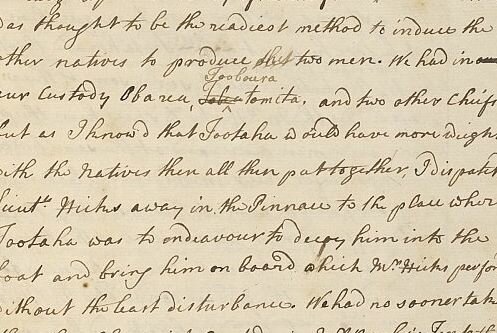 was thought to be the readiest method to induce the
other natives to produce the two men. We had in
our Custody Obarea, Toobouratomita, and two other Chiefs
but as I know'd that Tootaha would have more weight
with the Natives then all then put together, I dispatch
Lieutt. Hicks away in the Pinnace to the place where
Tootaha was to endeavour to decoy him into the
boat and bring him on board which Mr. Hicks perform
without the least disturbance. We had no sooner taken